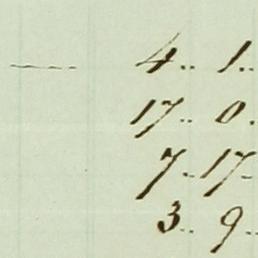 — 4.. 1..
17.. 0.
7.. 17..
3.. 9..